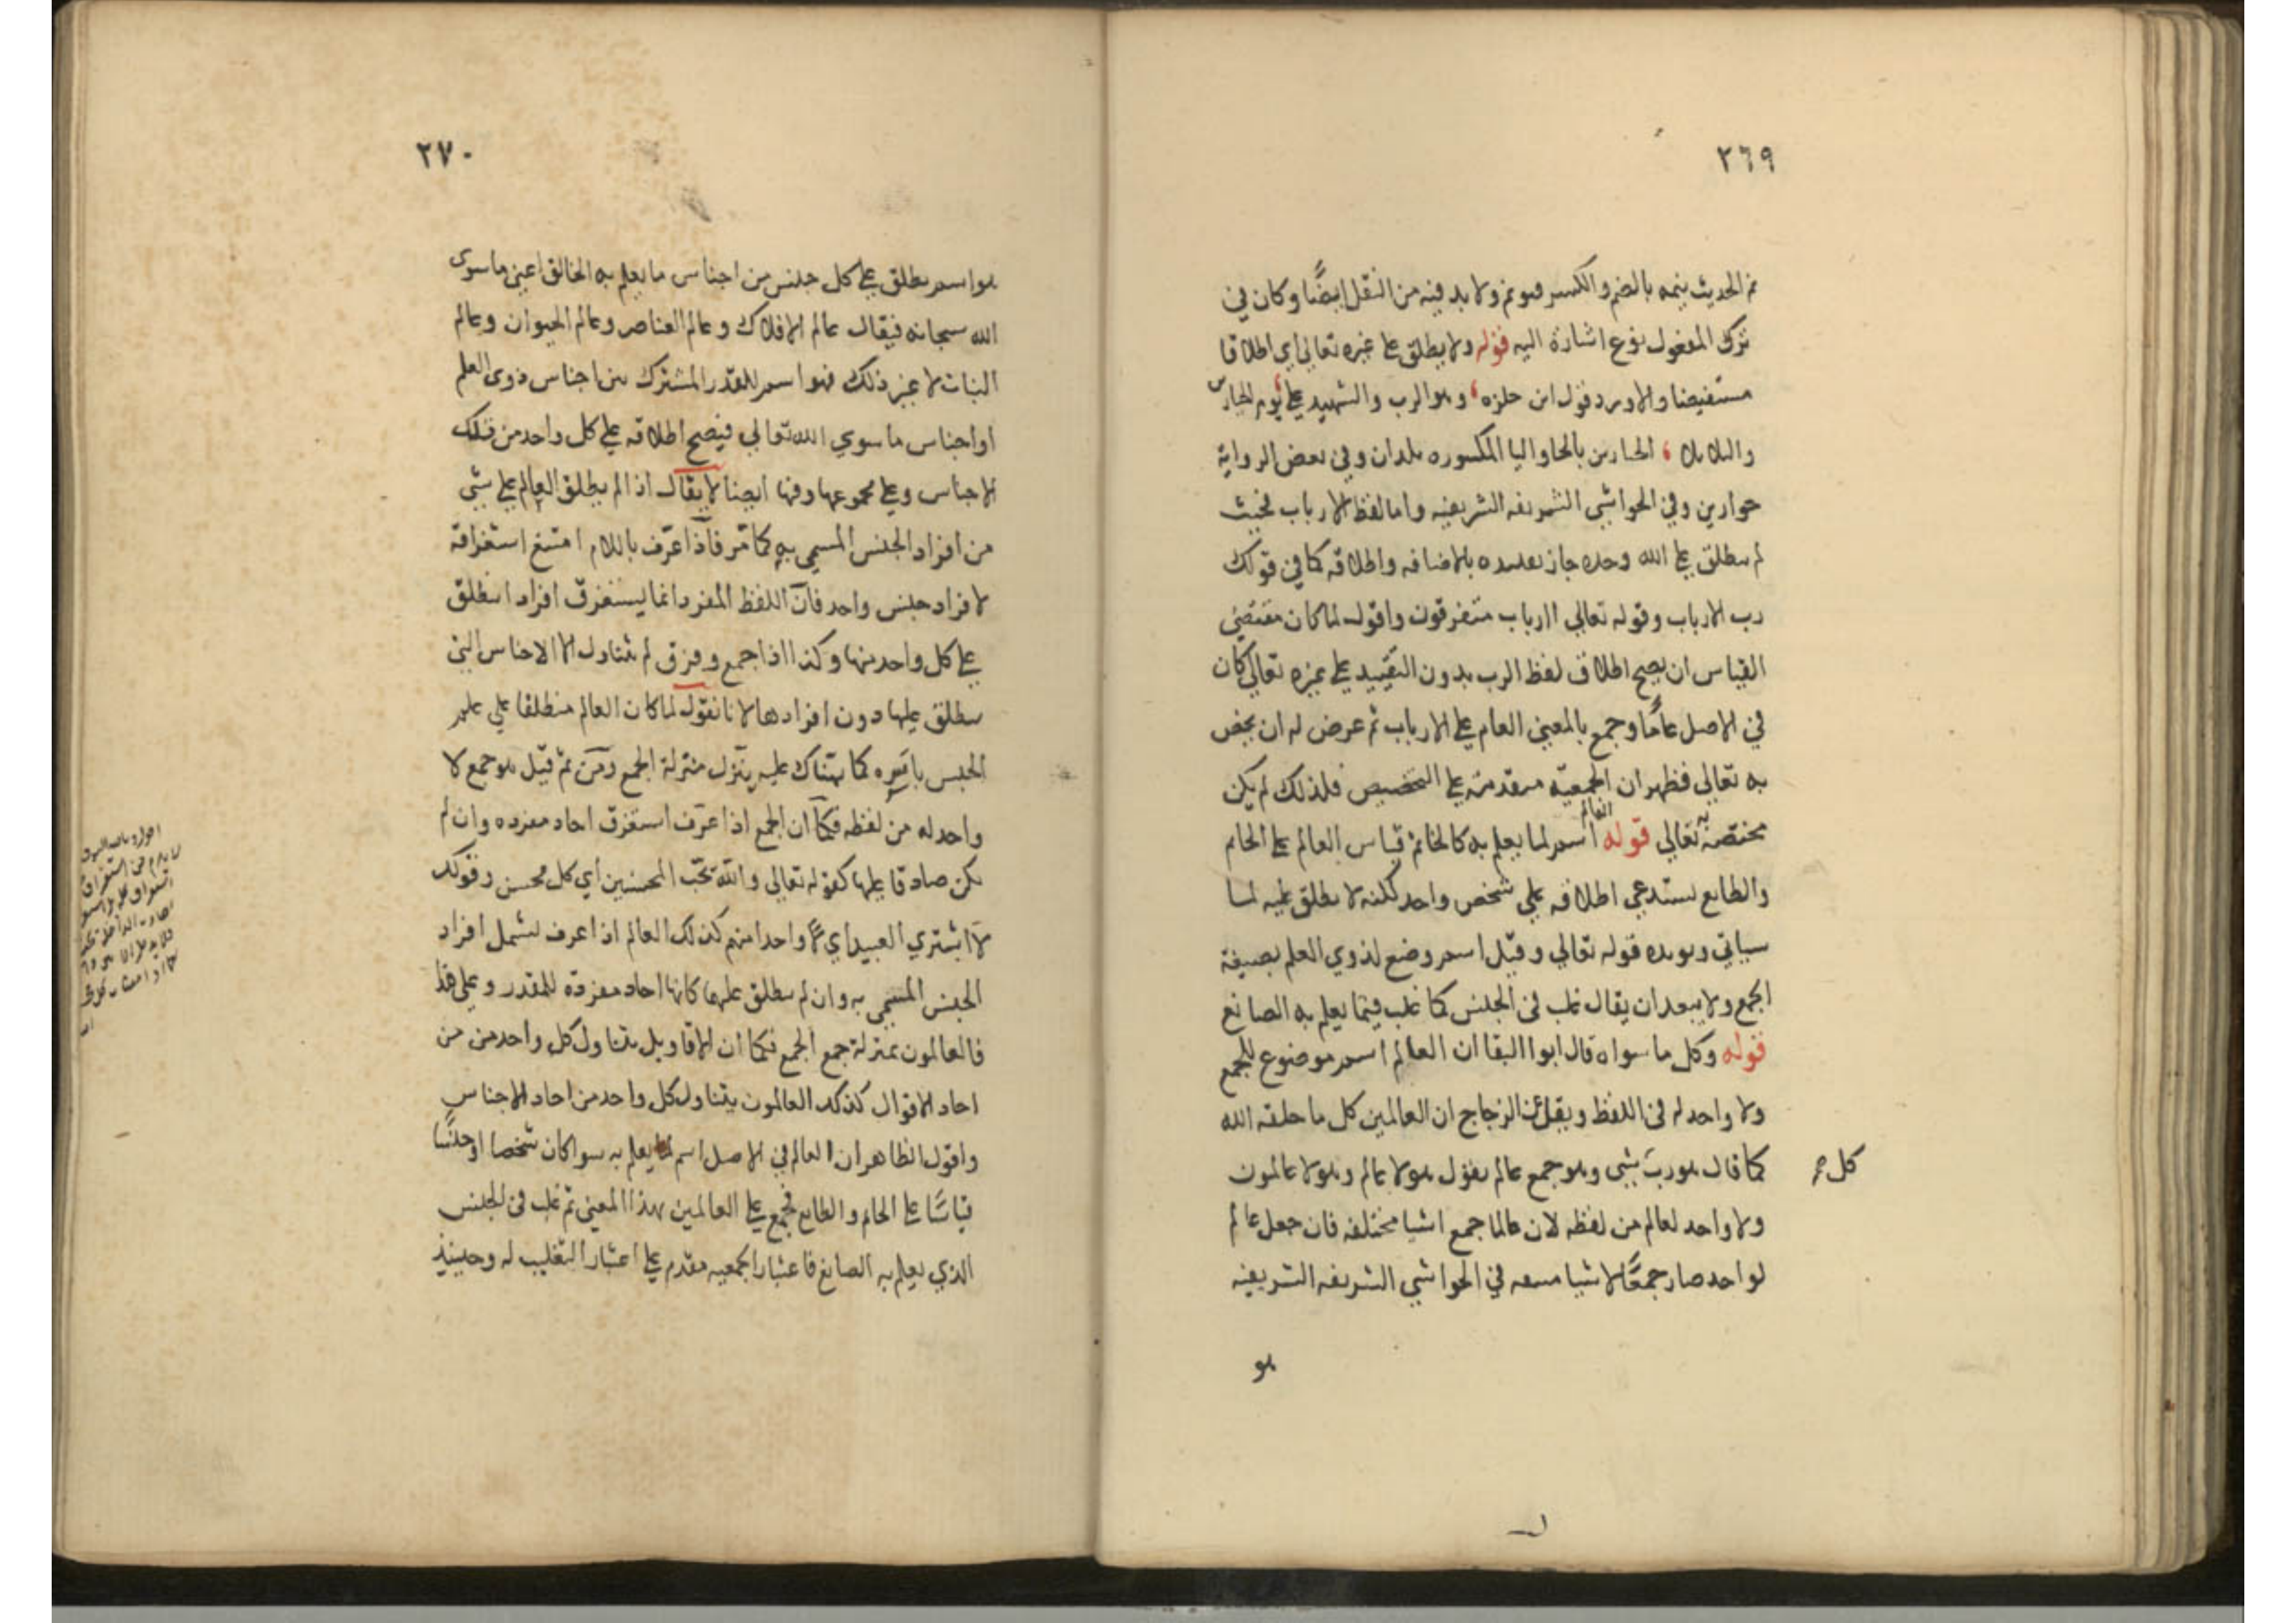 ٢٦٩
نم الحديث ينمه بالضم والكسر فهو نم ولا بد فيه من النقل ايضًا وكان في
ترك المفعول نوع اشارة اليه قوله ولا يطلق على غيره تعالى اي اطلاقا
مستفيضا والا ورد قول ابن حلزه وهو الرب والشهيد على يوم الحيارين
والبلا بلا الحيارين بالحا واليا المكسوره بلدان وفي بعض الرواية
حوارين وفي الحواشي الشريفه الشريفيه واما لفظ الارباب فحيث
لم يطلق على الله وحده جاز تقييده بالاضافه واطلاقه كما في قولك
رب الارباب وقوله تعالى اارباب متفرقون واقول لما كان مقتضى
القياس ان يصح اطلاق لفظ الرب بدون التقييد على غيره تعالى كان
في الاصل عامًا وجمع بالمعنى العام على الارباب ثم عرض له ان يخص
به تعالى فظهر ان الجمعيه مقدمة على التخصيص فلذلك لم يكن
مختصة به تعالى قوله العالم اسم لما يعلم به كالخاتم قياس العالم على الخاتم
والطابع يستدعي اطلاقه على شخص واحد لكنه لا يطلق عليه لما
سياتي ويويده قوله تعالى وقيل اسم وضع لذوي العلم بصيغة
الجمع ولا يبعد ان يقال غلب في الجنس كما غلب فيما يعلم به الصانع
قوله وكل ما سواه قال ابوا البقا ان العالم اسم موضوع للجمع
ولا واحد له في اللفظ ونقل عن الزجاج ان العالمين كل ما خلقه الله
كما قال هو رب شي وهو جمع عالم يقول هولا عالم وهولا عالمون
كل صح
ولا واحد لعالم من لفظه لان عالما جمع اشيا مختلفه فان جعل عالم
لواحد صار جمعًا لاشيا متفقه في الحواشي الشريفه الشريفيه
هو
٢٧٠
هو اسم يطلق على كل جنس من اجناس ما يعلم به الخالق اعني ما سوى
الله سبحانه فيقال عالم الافلاك وعالم العناصر وعالم الحيوان وعالم
النبات لا غير ذلك فهو اسم للقدر المشترك بين اجناس ذوى العلم
او اجناس ما سوي الله تعالى فيصح اطلاقه على كل واحد من تلك
الاجناس وعلى مجموعها وفيها ايضا لا يقال اذا لم يطلق العالم على شي
من افراد الجنس المسمى به كما مر فاذا عرف باللام امتنع استغراقه
لافراد جنس واحد فان اللفظ المفرد انما يستغرق افرادا ينطلق
على كل واحد منها وكذا اذا جمع وفرق لم يتناول الا الاجناس التي
ينطلق عليها دون افرادها لانا نقول لما كان العالم منطلقا على
الجنس باسره كما بهناك عليه ينزل منزلة الجمع ومن ثم قيل هو جمع لا
واحد له من لفظه فكما ان الجمع اذا عرف استغرق احاد مفرده وان لم
يكن صادقا عليها كقوله تعالى والله يحب المحسنين أي كل محسن وقولك
لا اشتري العبيد اي كلا واحدا منهم كذلك العالم اذا عرف يشمل افراد
الجنس المسمى به وان لم يطلق عليها كانها احاد مفرده المقدر وعلى هذا
فالعالمون بمنزلة جمع الجمع فكما ان الاقاويل يتناول كل واحد من من
احاد الاقوال كذلك العالمون يتناول كل واحد من احاد الاجناس
واقول الظاهر ان العالم في الاصل اسم لما يعلم به سوا كان شخصا او جنسًا
قياسًا على الخاتم والطابع فجمع على العالمين بهذا المعنى ثم غلب في الجنس
الذي يعلم به الصانع فاعتبار الجمعيه مقدم على اعتبار التغليب له وحينيذ